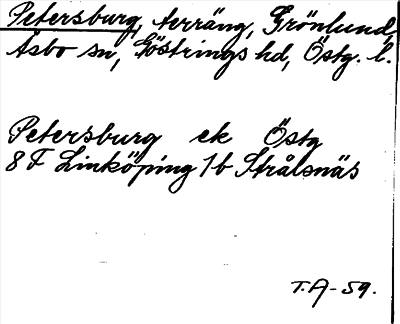 Petersburg, terräng, Grönlund,
Åsbo sn, Göstrings hd, Östg. l.
Petersburg ek Östg
8 F Linköping 1b Strålsnäs
T.A-59.